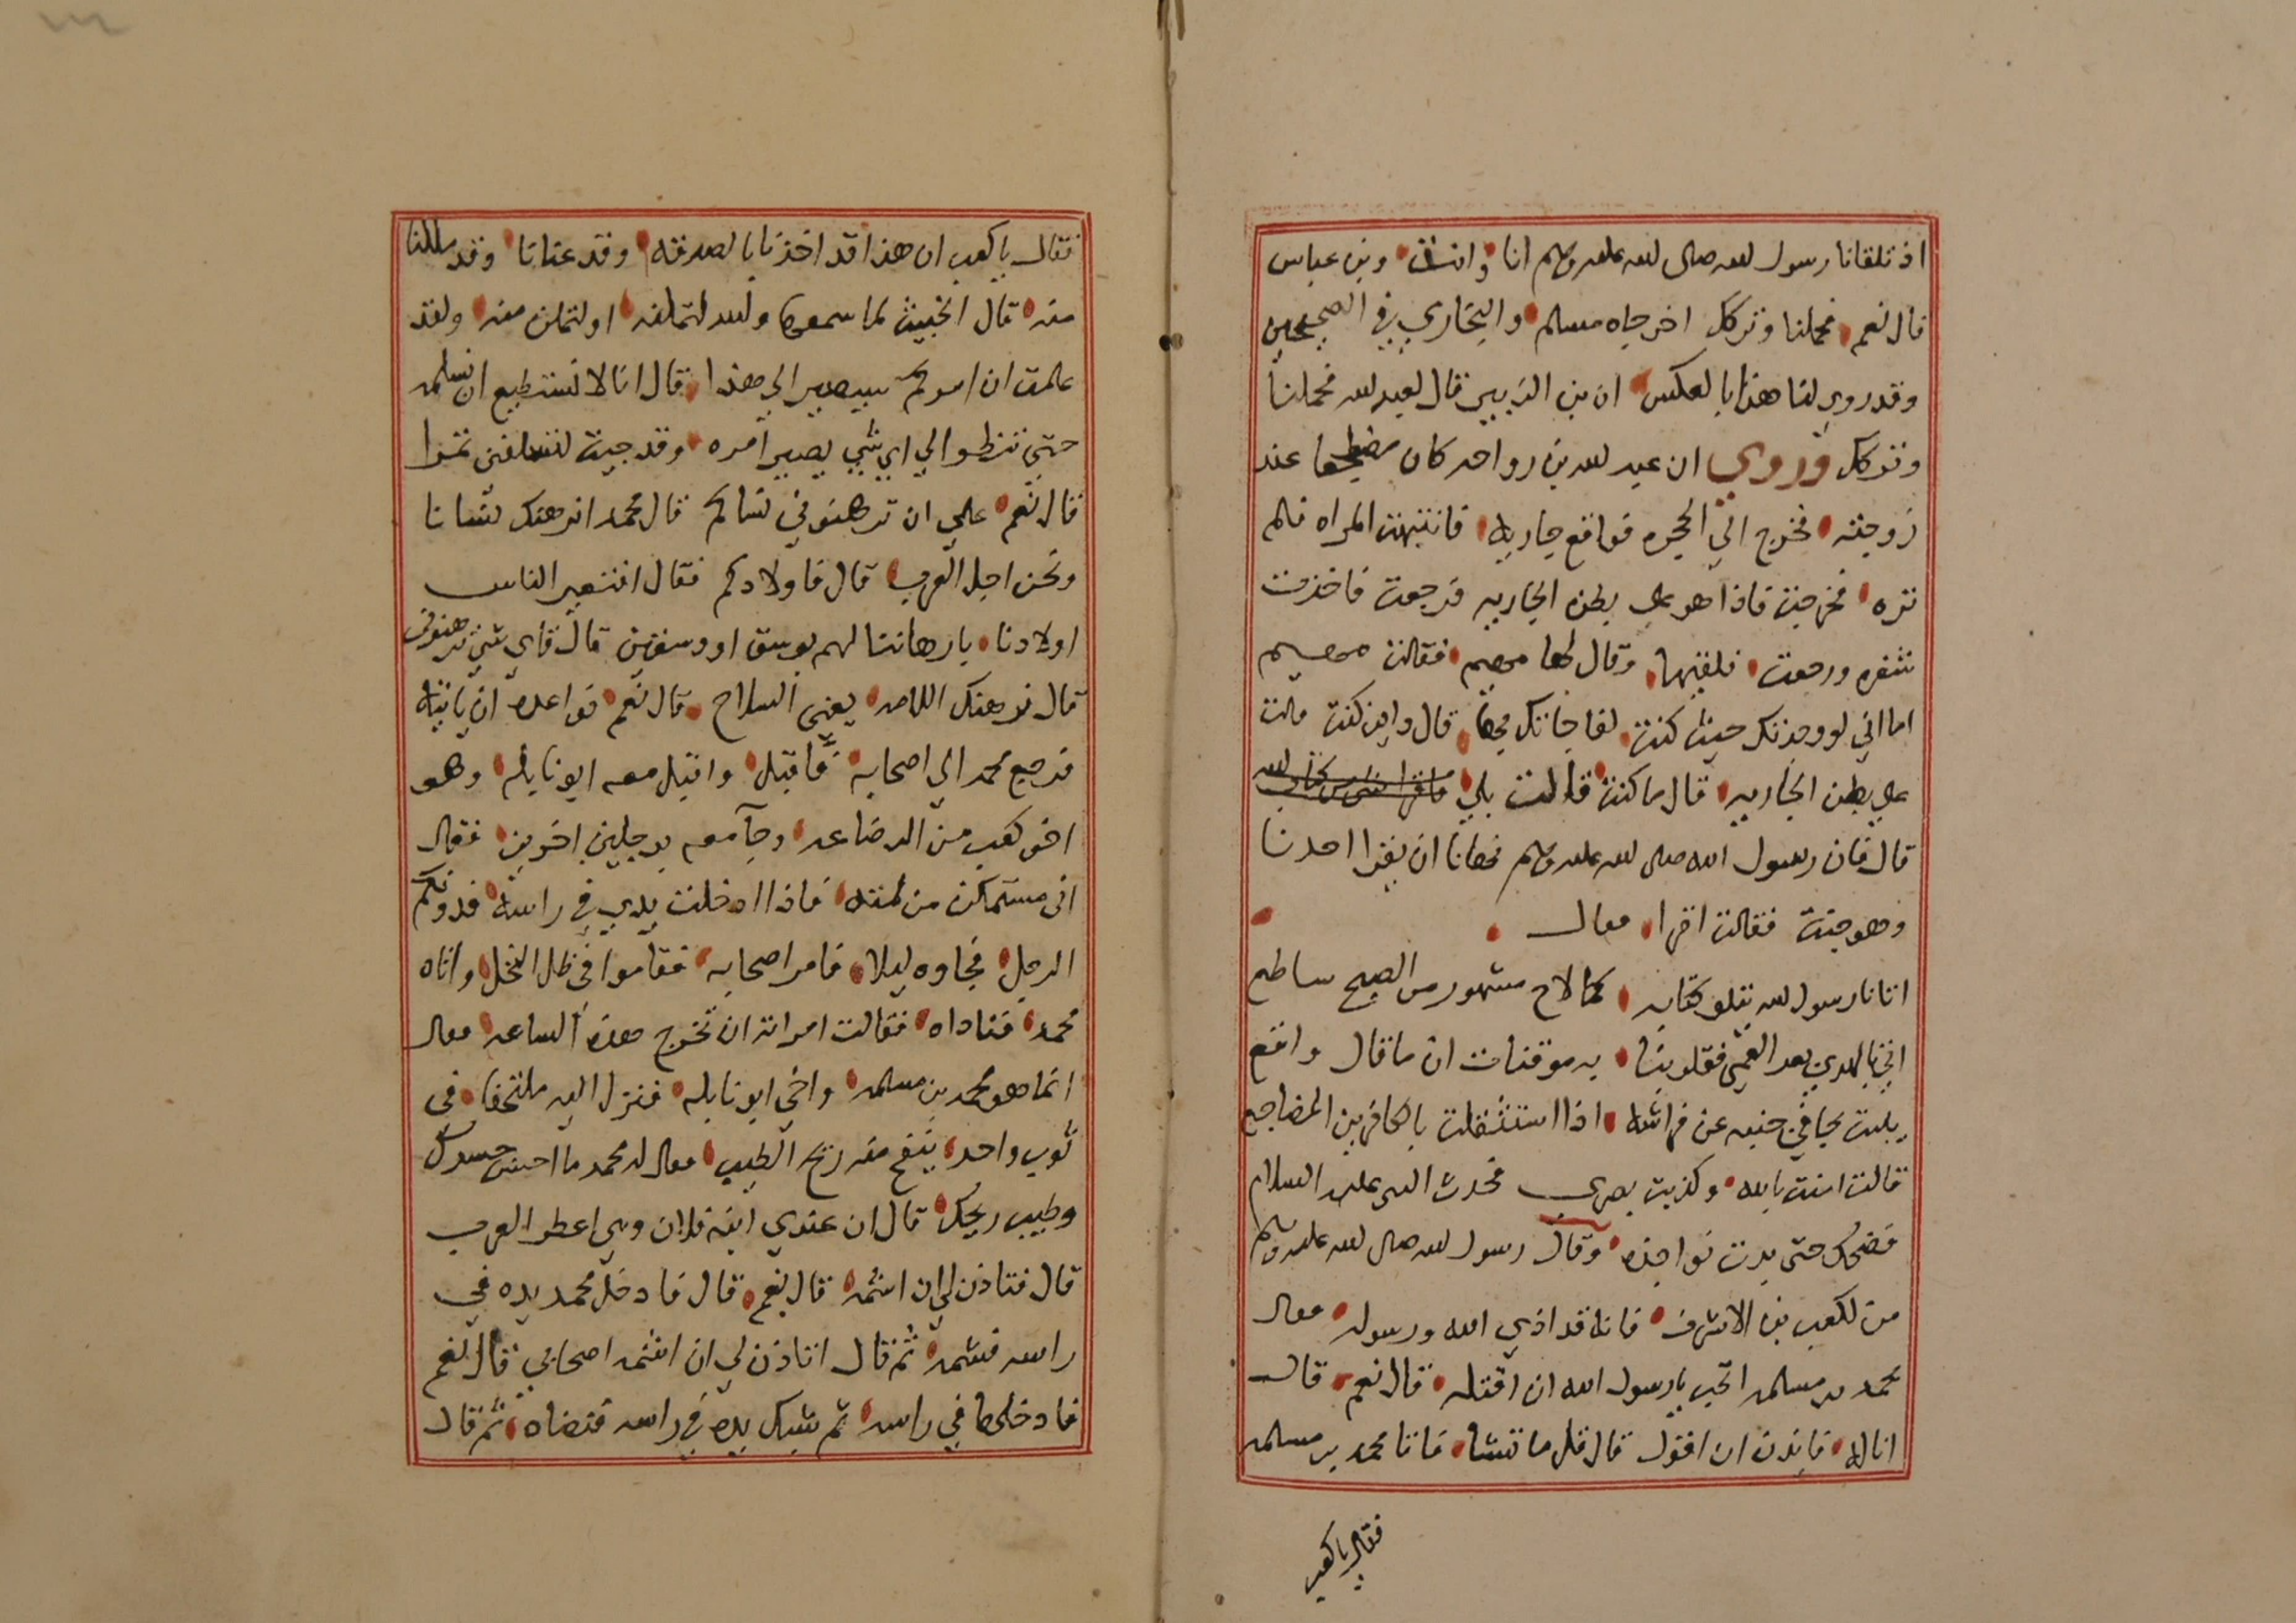 اذ تلقانا رسول الله صلى الله عليه وسلم انا وانت وبن عباس
قال نعم فحملنا وتركك اخرجاه مسلم والبخاري في الصحيحين
وقد روي لنا هذا بالعكس ان بن الزبير قال لعبد الله فحملنا
وتركك وروي ان عبد الله بن رواحه كان مضطجعا عند
زوجته فخرج الي الحجره فواقع جاريه فانتبهت المراه فلم
تره فخرجت فاذا هو علي بطن الجاريه فرجعت فاخذت
شفره ورجعت فلقيها وقال لها مهيم فقالت مهيم
اما اني لو وجدتك حيث كنت لفاجاتك بها قال واين كنت قالت
علي بطن الجاريه قال ما كنت قالت بلي
قال فان رسول الله صلى الله عليه وسلم نهانا ان يقرا احدنا
وهو جنب فقالت اقرا فقال
اتانا رسول الله يتلو كتابه كما لاح مشهور من الصبح ساطع
اتي بالهدي بعد العمي فقلوبنا به موقنات ان ما قال واقع
يبيت يجافي جنبه عن فراشه اذا استثقلت بالكافرين المضاجع
قالت امنت بالله وكذبت بصري فحدث النبي عليه السلام
فضحك حتى بدت نواجذه وقال رسول الله صلى الله عليه وسلم
من لكعب بن الاشرف فانه قد اذي الله ورسوله فقال
محمد بن مسلمه اتحب يا رسول الله ان اقتله قال نعم قال
انا له فايذن ان اقول قال قل ما تشا فاتا محمد بن مسلمه
فقال يا كعب
فقال يا كعب ان هذا قد اخذنا بالصدقه وقد عنانا وقد مللنا
منه قال الخبيث لما سمعها والله لتملنه او لتملن منه ولقد
علمت ان امركم سيصير الي هذا قال انا لا نستطيع ان نسلمه
حتي ننظر الي اي شي يصير امره وقد جيت لتسلفني تمرا
قال نعم علي ان ترهنوني نساكم قال محمد انرهنك نسانا
ونحن اجل العرب قال فاولادكم فقال افتعير الناس
اولادنا بارهاننا لهم بوسق او وسقين قال فاي شي ترهنوني
قال نرهنك اللامه يعني السلاح قال نعم فواعده ان ياتيه
فرجع محمد الي اصحابه فاقبل واقبل معه ابو نايله وهو
اخو كعب من الرضاعه وجآ معه برجلين اخرين فقال
اني مستمكن من لمته فاذا ادخلت يدي في راسه فدونكم
الرجل فجاوه ليلا فامر اصحابه فقاموا في ظل النخل واتاه
محمد فناداه فقالت امراته ان تخرج هذه الساعه فقال
انما هو محمد بن مسلمه واخي ابو نايله فنزل اليه ملتحفا في
ثوب واحد ينفح منه ريح الطيب فقال له محمد ما احسن جسدك
وطيب ريحك قال ان عندي ابنه فلان وهي اعطر العرب
قال فتاذن لي ان اشمه قال نعم قال فادخل محمد يده في
راسه فشمه ثم قال اتاذن لي ان اشمه اصحابي قال نعم
فادخلها في راسه ثم شبك يده في راسه فنصاه ثم قال